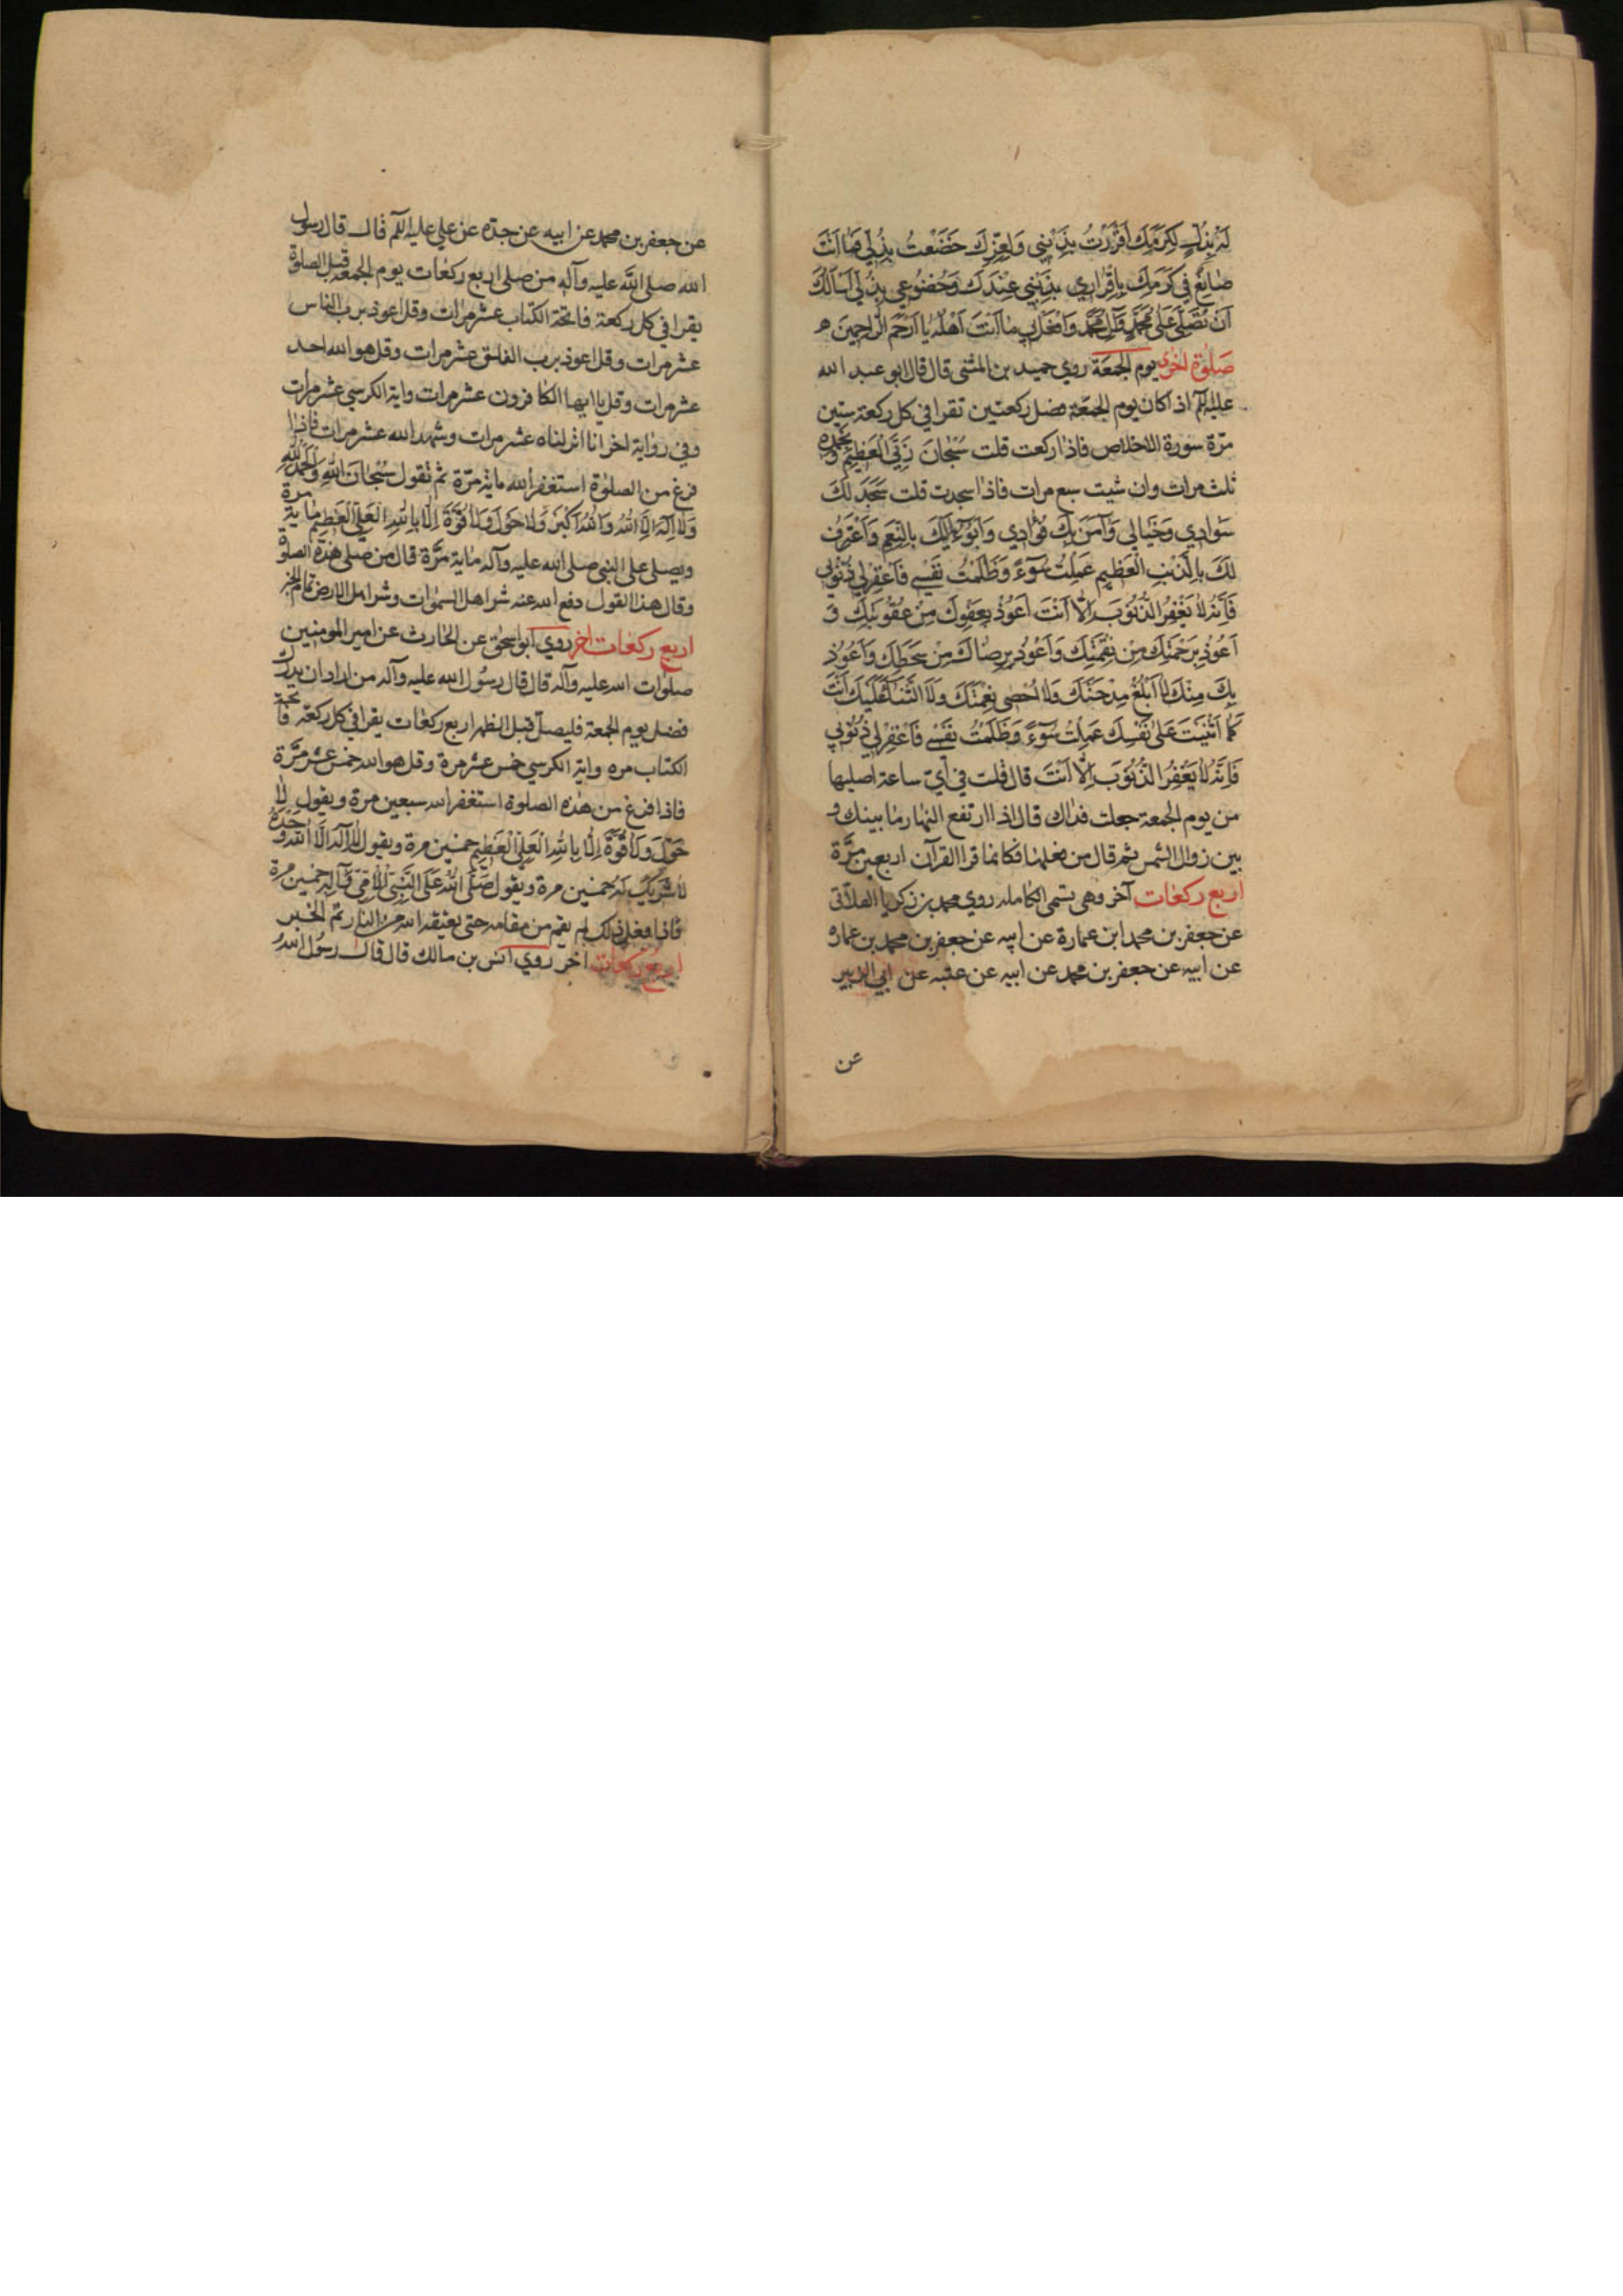 لَهُ بِذُلٍّ لِكَرَمِكَ اَقْرَرْتُ بِذَنْبِي وَلِعِزِّكَ خَضَعْتُ بِذُلِّي فَمَا اَنْتَ
صَانِعٌ فِي كَرَمِكَ بِاِقْرَارِي بِذَنْبِي عِنْدَكَ وَخُضُوعِي بِذُلِّي اَسْاَلُكَ
اَنْ تُصَلِّيَ عَلَى مُحَمَّدٍ وَآلِ مُحَمَّدٍ وَافْعَلْ بِي مَا اَنْتَ اَهْلُهُ يَا اَرْحَمَ الرَّاحِمِينَ
صَلٰوة اخرى يوم الجمعَة روي حميد بن المثنى قال قال ابو عبد الله
عليه السلام اذا كان يوم الجمعة فصل ركعتين تقرا في كل ركعة ستين
مرّة سورة الاخلاص فاذا ركعت قلت سُبْحَانَ رَبِّيَ الْعَظِيمِ وَبِحَمْدِهِ
ثلث مرات وان شيت سبع مرات فاذا سجدت قلت سَجَدَ لَكَ
سَوَادِي وَخَيَالِي وَآمَنَ بِكَ فُؤَادِي وَاَبُوءُ اِلَيْكَ بِالنِّعَمِ وَاَعْتَرِفُ
لَكَ بِالذَّنْبِ الْعَظِيمِ عَمِلْتُ سُوٓءً وَظَلَمْتُ نَفْسِي فَاغْفِرْ لِي ذُنُوبِي
فَاِنَّهُ لَا يَغْفِرُ الذُّنُوبَ اِلَّا اَنْتَ اَعُوذُ بِعَفْوِكَ مِنْ عُقُوبَتِكَ وَ
اَعُوذُ بِرَحْمَتِكَ مِنْ نِقْمَتِكَ وَاَعُوذُ بِرِضَاكَ مِنْ سَخَطِكَ وَاَعُوذُ
بِكَ مِنْكَ لَا اَبْلُغُ مِدْحَتَكَ وَلَا اُحْصِي نِعْمَتَكَ وَلَا الثَّنَاءَ عَلَيْكَ اَنْتَ
كَمَا اَثْنَيْتَ عَلَى نَفْسِكَ عَمِلْتُ سُوٓءً وَظَلَمْتُ نَفْسِي فَاغْفِرْ لِي ذُنُوبِي
فَاِنَّهُ لَا يَغْفِرُ الذُّنُوبَ اِلَّا اَنْتَ قال قلت في اَيّ ساعة اصليها
من يوم الجمعة جعلت فداك قال اذا ارتفع النهار ما بينك و
بين زوال الشمس ثم قال من فعلها فكانما قرا القرآن اربعين مرَّة
اربع ركعات آخر وهى تسمى الكامله روي محمد بن زكريا الغلابي
عن جعفر بن محمد ابن عمارة عن ابيه عن جعفر بن محمد بن عماره
عن ابيه عن جعفر بن محمد عن ابيه عن عتبه عن ابي الزبير
عن
عن جعفر بن محمد عن ابيه عن جدّه عن علي عليه السلام قال قال رسول
الله صلى الله عليه وآله من صلى اربع ركعات يوم الجمعة قبل الصلوة
يقرا في كل ركعة فاتحة الكتاب عشر مرات وقل اعوذ برب الناس
عشر مرات وقل اعوذ برب الفلق عشر مرات وقل هو الله احد
عشر مرات وقل يا ايها الكافرون عشر مرات واية الكرسي عشر مرات
وفي رواية اخر انا انزلناه عشر مرات وشهد الله عشر مرات فاذا
فرغ من الصلوة استغفر الله ماية مرّة ثم تقول سُبْحَانَ اللهِ وَالْحَمْدُ لِلّٰهِ
وَلَا اِلٰهَ اِلَّا اللهُ وَاللهُ اَكْبَرُ وَلَا حَوْلَ وَلَا قُوَّةَ اِلَّا بِاللهِ الْعَلِيِّ الْعَظِيمِ ماية مرة
ويصلى على النبي صلى الله عليه وآله ماية مرَّة قال من صلى هذه الصلوة
وقال هذا القول دفع الله عنه شر اهل السموات وشر اهل الارض تمام الخبر
اربع ركعات اخر روي ابو اسحق عن الحارث عن امير المومنين
صلوات الله عليه وآله قال قال رسُول الله عليه وآله من اراد ان يدرك
فضل يوم الجمعة فليصل قبل الظهر اربع ركعات يقرا في كل ركعة فاتحة
الكتاب مره واية الكرسي خمس عشر مرة وقل هو الله خمس عشر مرَّة
فاذا فرغ من هذه الصلوة استغفر الله سبعين مرة ويقول لَا
حَوْلَ وَلَا قُوَّةَ اِلَّا بِاللهِ الْعَلِيِّ الْعَظِيمِ خمسين مرة ويقول لَا اِلٰهَ اِلَّا اللهُ وَحْدَهُ
لَا شَرِيكَ لَهُ خمسين مرة ويقول صَلَّى اللهُ عَلَى النَّبِيِّ الْاُمِّيِّ وَآلِهِ خمسين مرة
فاذا فعل ذلك لم يقم من مقامه حتى يعتقه الله من النار تم الخبر
اربع ركعات اخر روي انس بن مالك قال قال رسُول الله